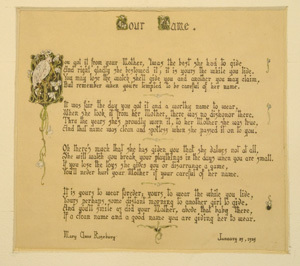 Your Name.
You got it from your Mother, 'twas the best she had to give,
And right gladly she bestowed it; it is yours the while you live.
You may lose the watch she'll give you and another you may claim,
But remember when you're tempted to be careful of her name.
It was fair the day you got it and a worthy name to wear,
When she took it from her Mother, there was no dishonor there;
Thru the years she's proudly worn it, to her Mother she was true,
And that name was clean and spotless when she passed it on to you.
Oh there's much that she has given you that she values not at all,
She will watch you break your playthings in the days when you are small.
If you lose the
You'll never hurt your Mother if your careful of her name.
It is yours to wear forever, yours to wear the while you live,
Yours perhaps some distant morning to another girl to give.
And you'll smile as did your Mother, above that baby there,
If a clean name and a good name you are giving her to wear.
Mary
January